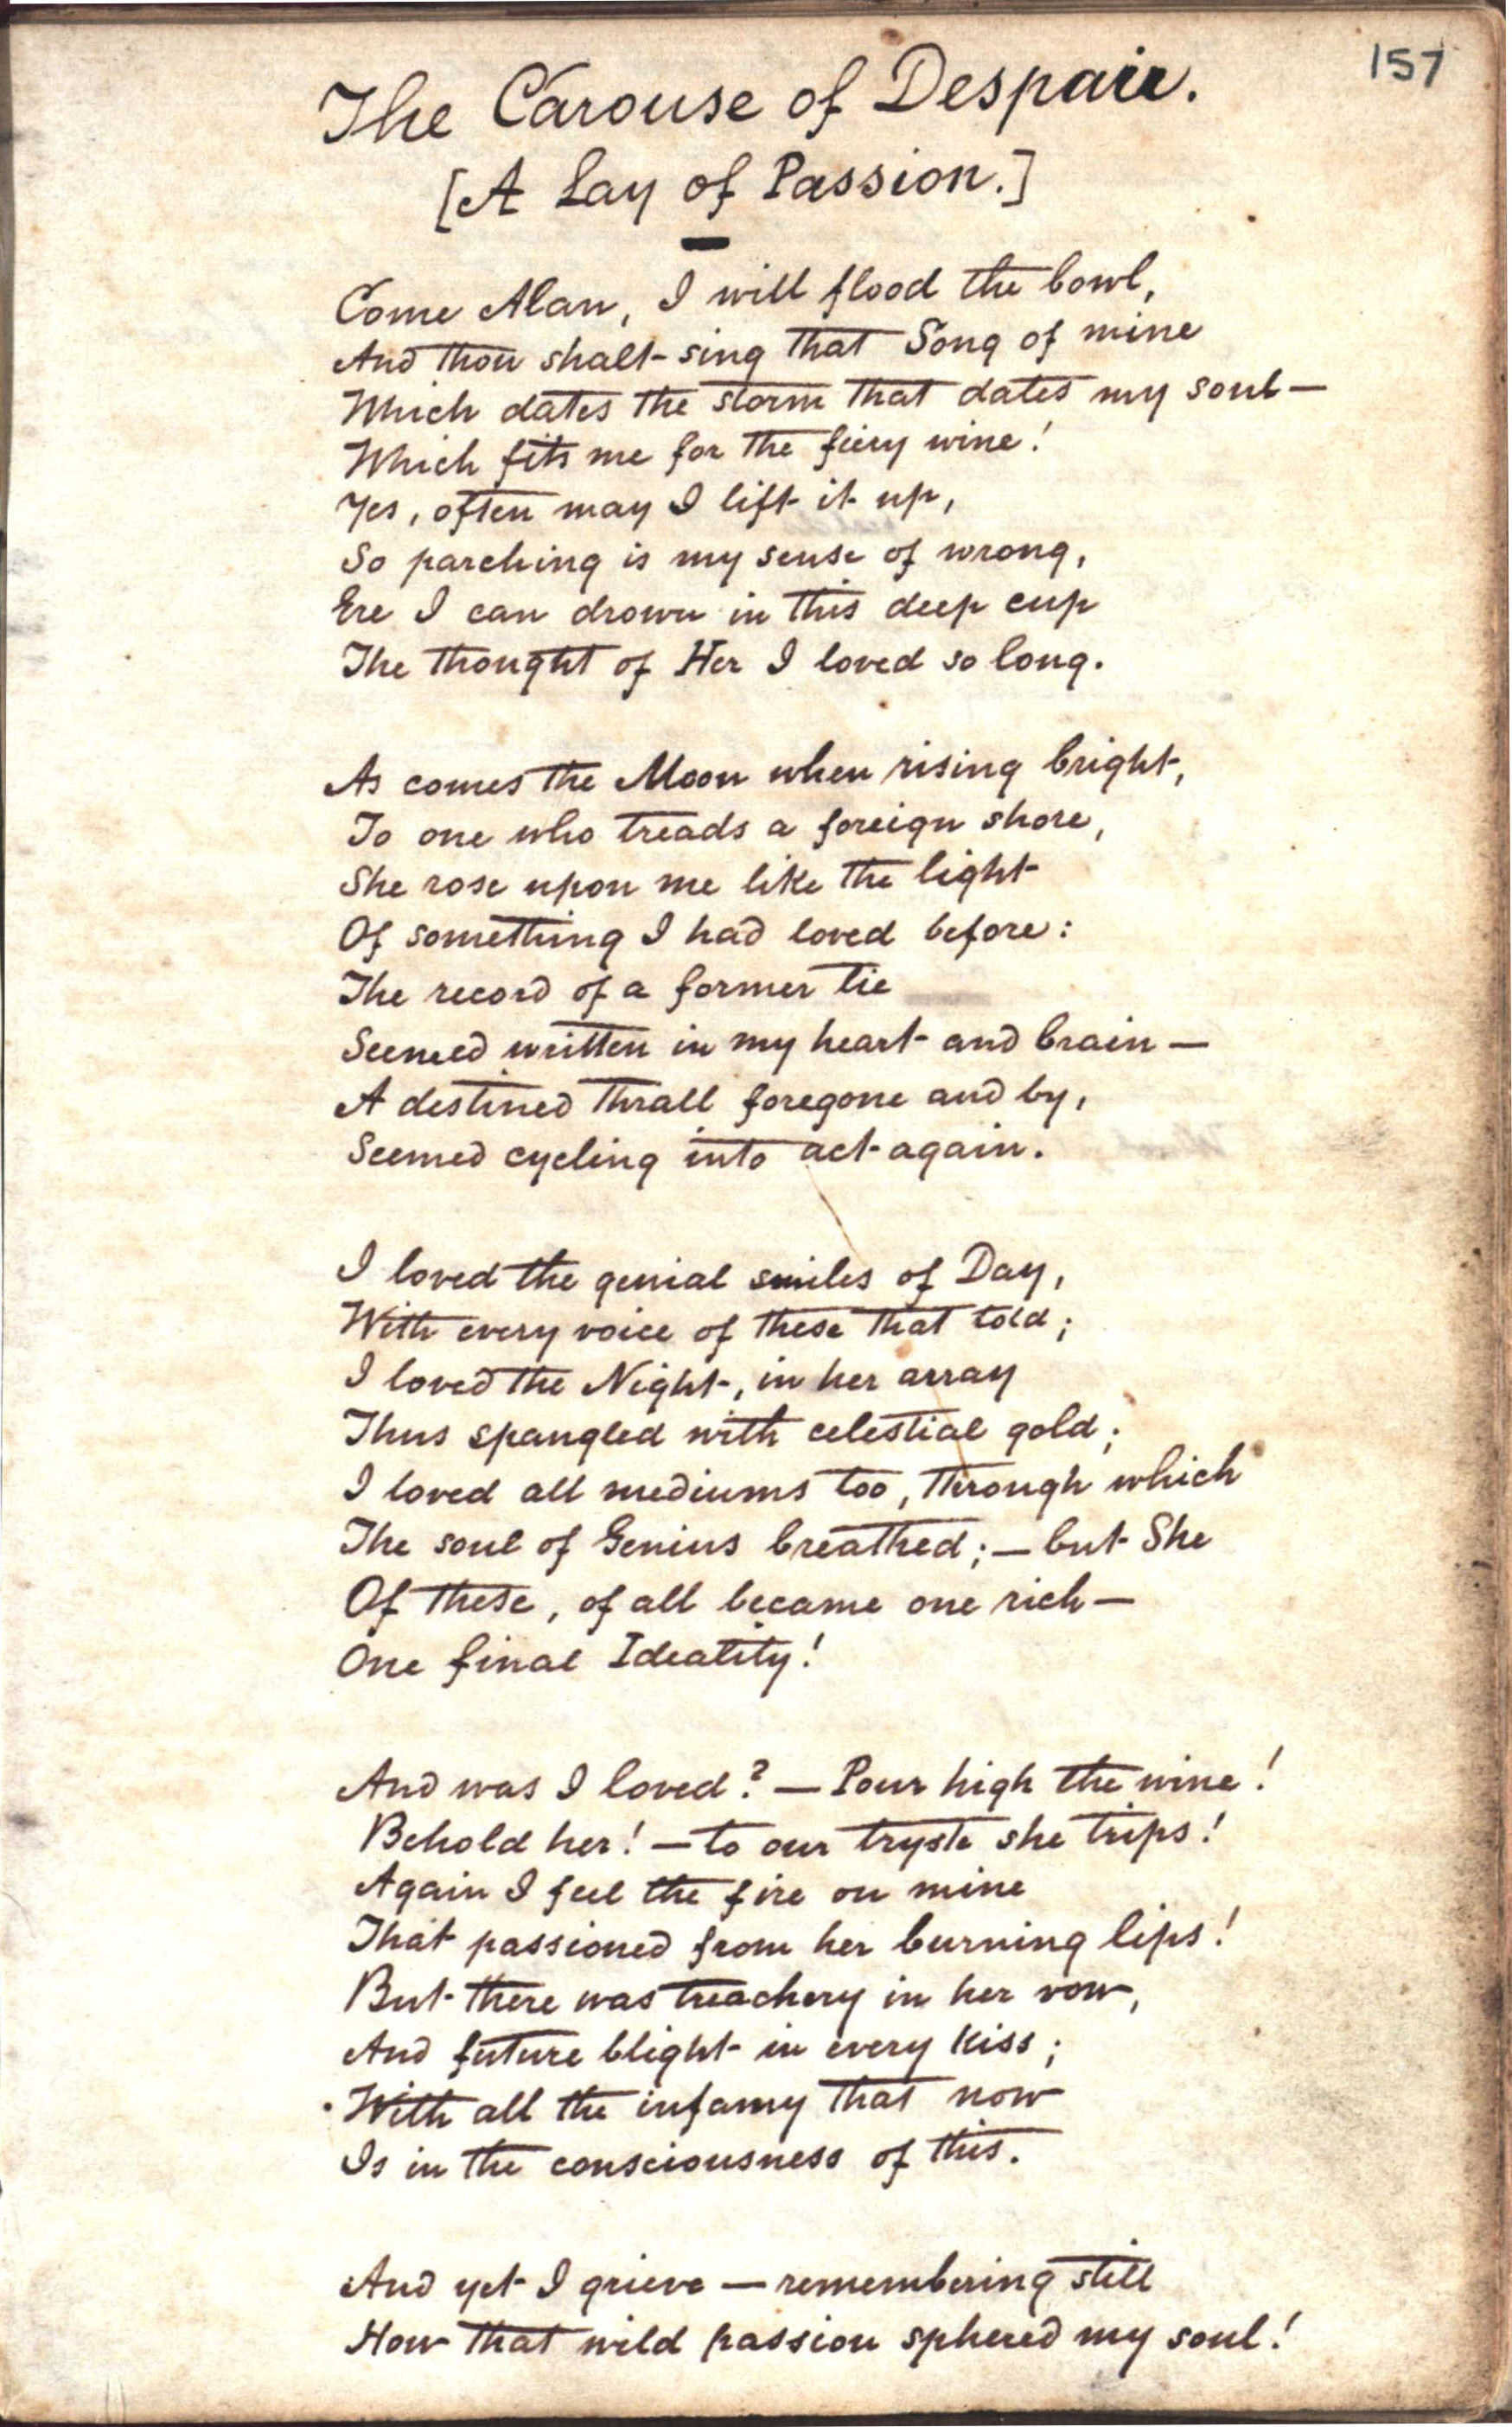 157
The Carouse of Despair.
[A Lay of Passion.]
Come Alan, I will flood the bowl,
And thou shalt sing that Song of mine
Which dates the storm that dates my soul—
Which fits me for the fiery wine!
Yes, often may I lift it up,
So parching is my sense of wrong,
Ere I can drown in this deep cup
The thought of Her I loved so long.
As comes the Moon when rising bright,
To one who treads a foreign shore,
She rose upon me like the light
Of something I had loved before:
The record of a former tie
Seemed written in my heart and brain—
A destined thrall foregone and by,
Seemed cycling into act again.
I loved the genial smiles of Day,
With every voice of these that told;
I loved the Night, in her array
Thus spangled with celestial gold;
I loved all mediums too, through which
The soul of Genius breathed;—but She
Of these, of all became one rich—
One final Ideality!
And was I loved?—Pour high the wine!
Behold her!—to our tryste she trips!
Again I feel the fire on mine
That passioned from her burning lips!
But there was treachery in her vow,
And future blight in every kiss;
With all the infamy that now
Is in the consciousness of this.
And yet I grieve—remembering still
How that wild passion sphered my soul!